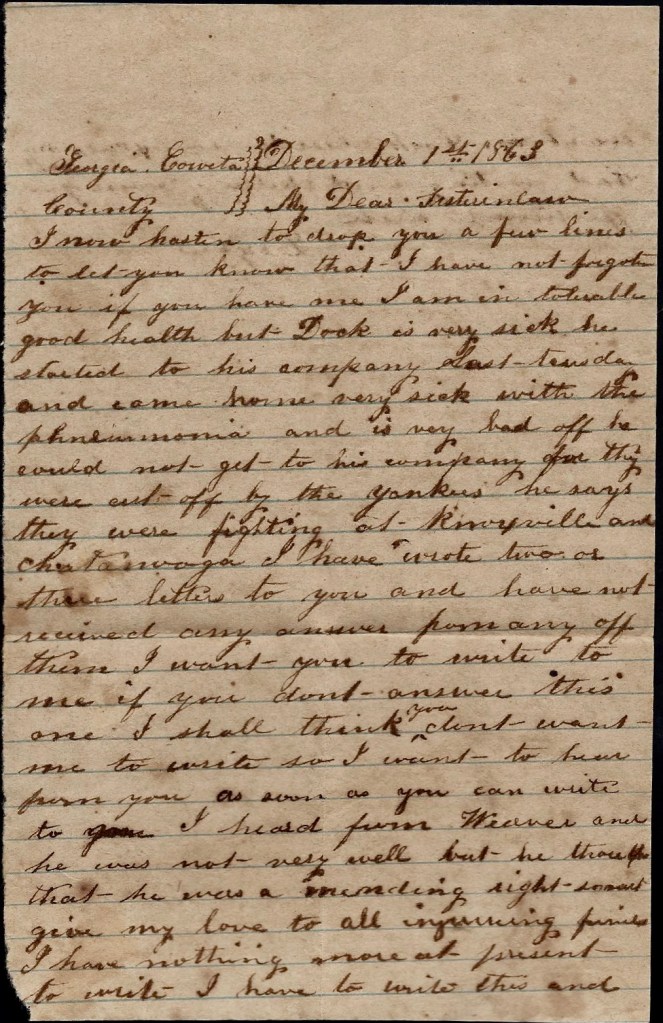 Georgia. Coweta December 1st 1863
County My Dear Sisterinlaw
I now hasten to drop you a few lines
to let you know that I have not forgoten
you if you have me I am in tolerable
good health but Dock is very sick he
started to his company Last tuesday
and came home very sick with the
phneumonia and is very bad off he
could not get to his company for they
were cut off by the yankees he says
they were fighting at Knoxville and
I have wrote two or
three letters to you and have not
received any answer from any off
them I want you to write to
me if you dont answer this
one I shall think you dont want
me to write so I want to hear
from you as soon as you can write
to I heard from Weaver and
he was not very well but he thought
that he was a mending right smart
give my love to all inquiring
I have nothing more at present
to write I have to write this and